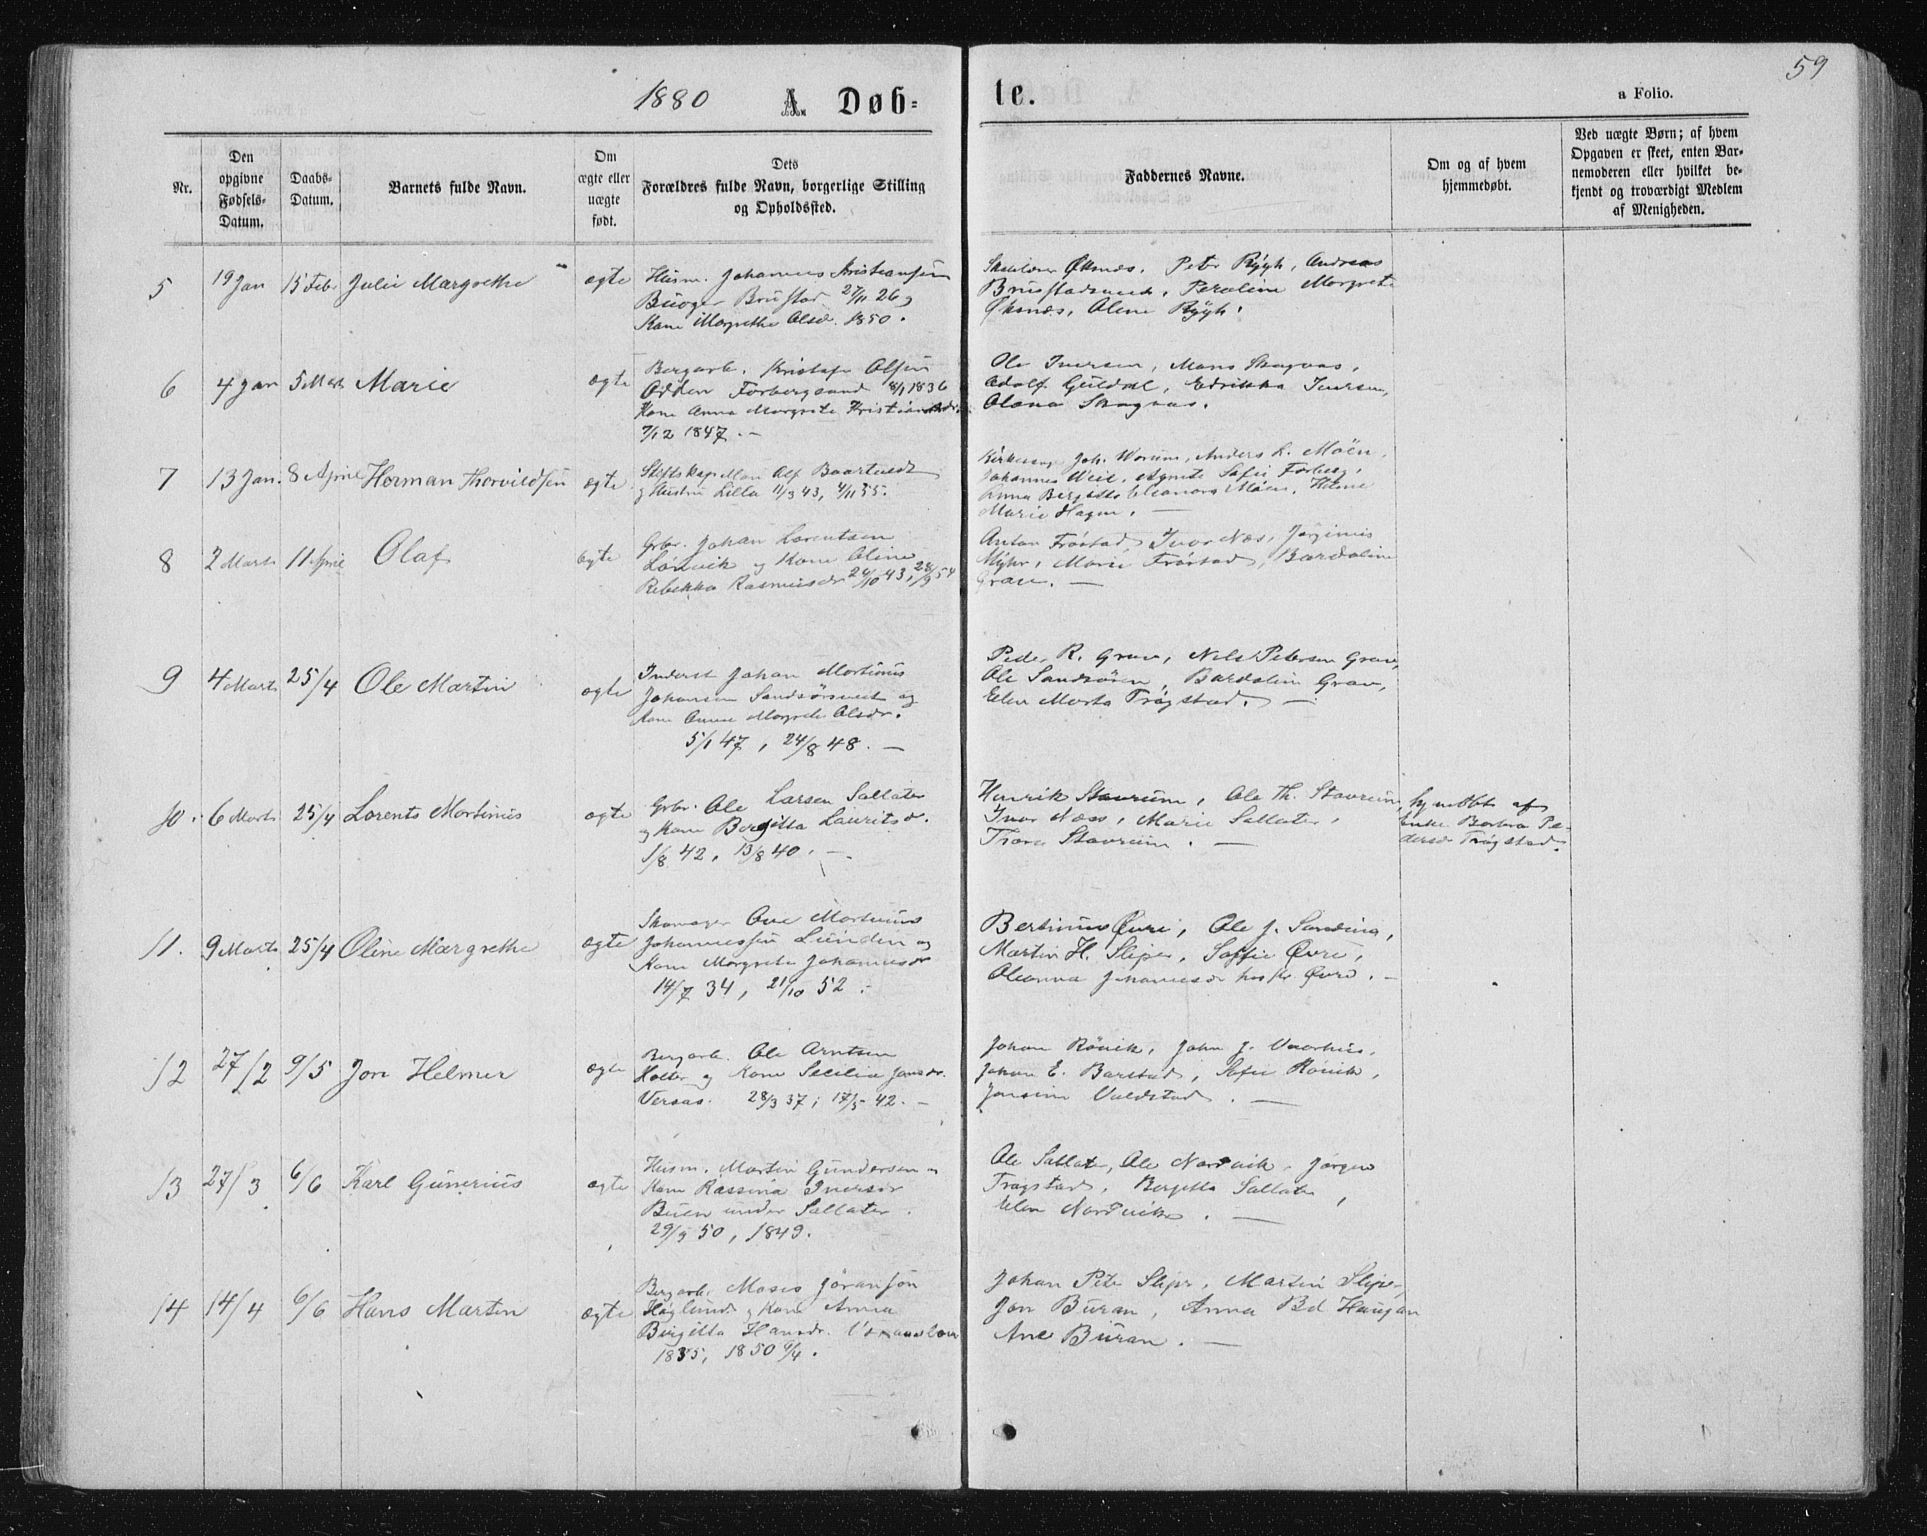 59
1880 A. Døb= te. a Folio.
Nr.
Den opgivne Fødsels-Datum.
Daabs-Datum.
Barnets fulde Navn.
Om ægte eller uægte født.
Dets Forældres fulde Navn, borgerlige Stilling og Opholdssted.
Faddernes Navne.
Om og af hvem hjemmedøbt.
Ved uægte Børn; af hvem Opgaven er skeet, enten Barnemoderen eller hvilket bekjendt og troværdigt Medlem af Menigheden.
5 19 Jan 15 Feb Julie Margrethe ægte
Husm. Johannes Kristiansen
Brustad 27/11 26 og
Kone Margrethe Olsd. 1850.
Øksnæs, Peter Rygh, Andreas
Peroline Margrete
Øksnæs, Oline Rygh.
6 4 Jan 5 Marts Marie ægte
Bergarb. Kristofer Olsen
Forbergsand 8/1 1836
Kone Anna Margrete Kristiansdr.
7/12 1847. —
Ole Iversen, Mons Skagnas,
Adolf Guldal, Edrikka Iversen,
Olana Skagnas.
7 13 Jan. 8 April Herman Thorvildsen ægte
Alf Baartvedt
og Hustru Lilla 11/3 43, 4/11 55.
Joh. Worum, Anders L. Möen,
Johannes Weie, Agnete Sofie Forberg,
Anna Bergitte Eleonora Möen, Helene
Marie Hagen. —
8 2 Marts 11 April Olaf ægte
Grbr. Johan Lorentsen
Lönvik og Kone Oline
Rebekka Rasmusdr 24/10 43, 28/9 54
Anton Fröstad, Ivar Næs, Jörginus
Myhr, Marie Fröstad, Bardoline
Grav. —
9 4 Marts 25/4 Ole Martin ægte
Inderst Johan Martinus
Johansen Sandsörsveet og
Kone Anne Margrete Olsdr.
5/1 47, 24/8 48. —
Peder R. Grav, Nils Petersen Grav,
Ole Sandsören, Bardolin Grav,
Elen Marta Trøgstad. —
10. 6 Marts 25/4 Lorents Martinus ægte
Grbr. Ole Larsen Sallater
og Kone Bergitta Lauritsd.
1/8 42, 13/8 40. —
Henrik Stavrum, Ole Th. Stavrum,
Ivar Næss, Marie Sallater,
Trone Stavrum. —
hjmdbt af
Enke Barbra Pe-
dersd Trøgstad.
11. 9 Marts 25/4 Oline Margrethe ægte
Skomager Ove Martinus
Johannessen Lunden og
Kone Margrete Johannesdr
14/7 34, 21/10 52.
Bertinus Øvre, Ole J. Sandina,
Martin H. Slipe, Soffie Øvre,
Oleanna Johannesdr Øvre. —
12 27/2 9/5 Jon Helmer ægte
Bergarb. Ole Arntsen
Holte og Kone Secilia Jonsdr.
Versaas. 28/3 37; 17/5 42. —
Johan Rönik, John J. Vaarhus,
Johan E. Barstad, Sofie Rönik,
Jonsine Vuldstad. —
13 27/3 6/6 Karl Gunerius ægte
Husm. Martin Gundersen og
Kone Rassina Iversdr
Buen under Sallater.
29/9 50, 1849.
Ole Sallater, Ole Nordvik, Jörgen
Trøgstad, Bergitta Sallater,
Elen Nordvik. —
14 14/4 6/6 Hans Martin ægte
Bergarb. Moses Jöransön
Høglund og Kone Anna
Birgitta Hansdr.
1835, 1850 9/4.
Johan Peter Slipe, Martin Slipe,
Jon Buran, Anna Bd Haugan
Ane Buran. —